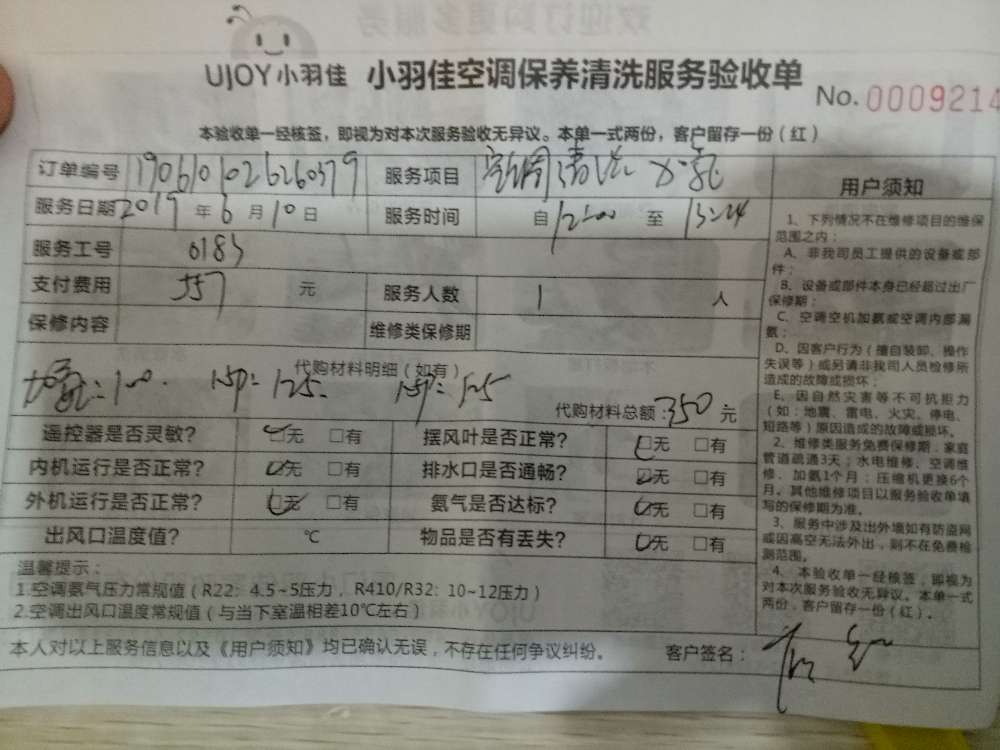 UJOY小羽佳 小羽佳空调保养清洗服务验收单
No. 0009214
本验收单一经核签，即视为对本次服务验收无异议。本单一式两份，客户留存一份（红）
订单编号 1906101026260379 服务项目 空调清洗 加氨
服务日期 2019 年 6 月 10 日 服务时间 自 12:00 至 13:24
服务工号 0183
支付费用 557 元 服务人数 1 人
保修内容 维修类保修期
代购材料明细（如有）
加氨=100 125 125
代购材料总额：350 元
遥控器是否灵敏？ ☑无 □有 摆风叶是否正常？ ☑无 □有
内机运行是否正常？ ☑无 □有 排水口是否通畅？ ☑无 □有
外机运行是否正常？ ☑无 □有 氨气是否达标？ ☑无 □有
出风口温度值？ ℃ 物品是否有丢失？ ☑无 □有
温馨提示：
1.空调氨气压力常规值（R22：4.5~5压力，R410/R32：10~12压力）
2.空调出风口温度常规值（与当下室温相差10℃左右）
本人对以上服务信息以及《用户须知》均已确认无误，不存在任何争议纠纷。 客户签名：
用户须知
1、下列情况不在维修项目的维保
范围之内：
A、非我司员工提供的设备或部
件；
B、设备或部件本身已经超过出厂
保修期；
C、空调空机加氨或空调内部漏
氨；
D、因客户行为（擅自装卸、操作
失误等）或另请非我司人员检修所
造成的故障或损坏；
E、因自然灾害等不可抗拒力
（如：地震、雷电、火灾、停电、
短路等）原因造成的故障或损坏。
2、维修类服务免费保修期，家庭
管道疏通3天；水电维修、空调维
修、加氨1个月；压缩机更换6个
月。其他维修项目以服务验收单填
写的保修期为准。
3、服务中涉及出外墙如有防盗网
或因高空无法外出，则不在免费检
测范围。
4、本验收单一经核签，即视为
对本次服务验收无异议。本单一式
两份，客户留存一份（红）。